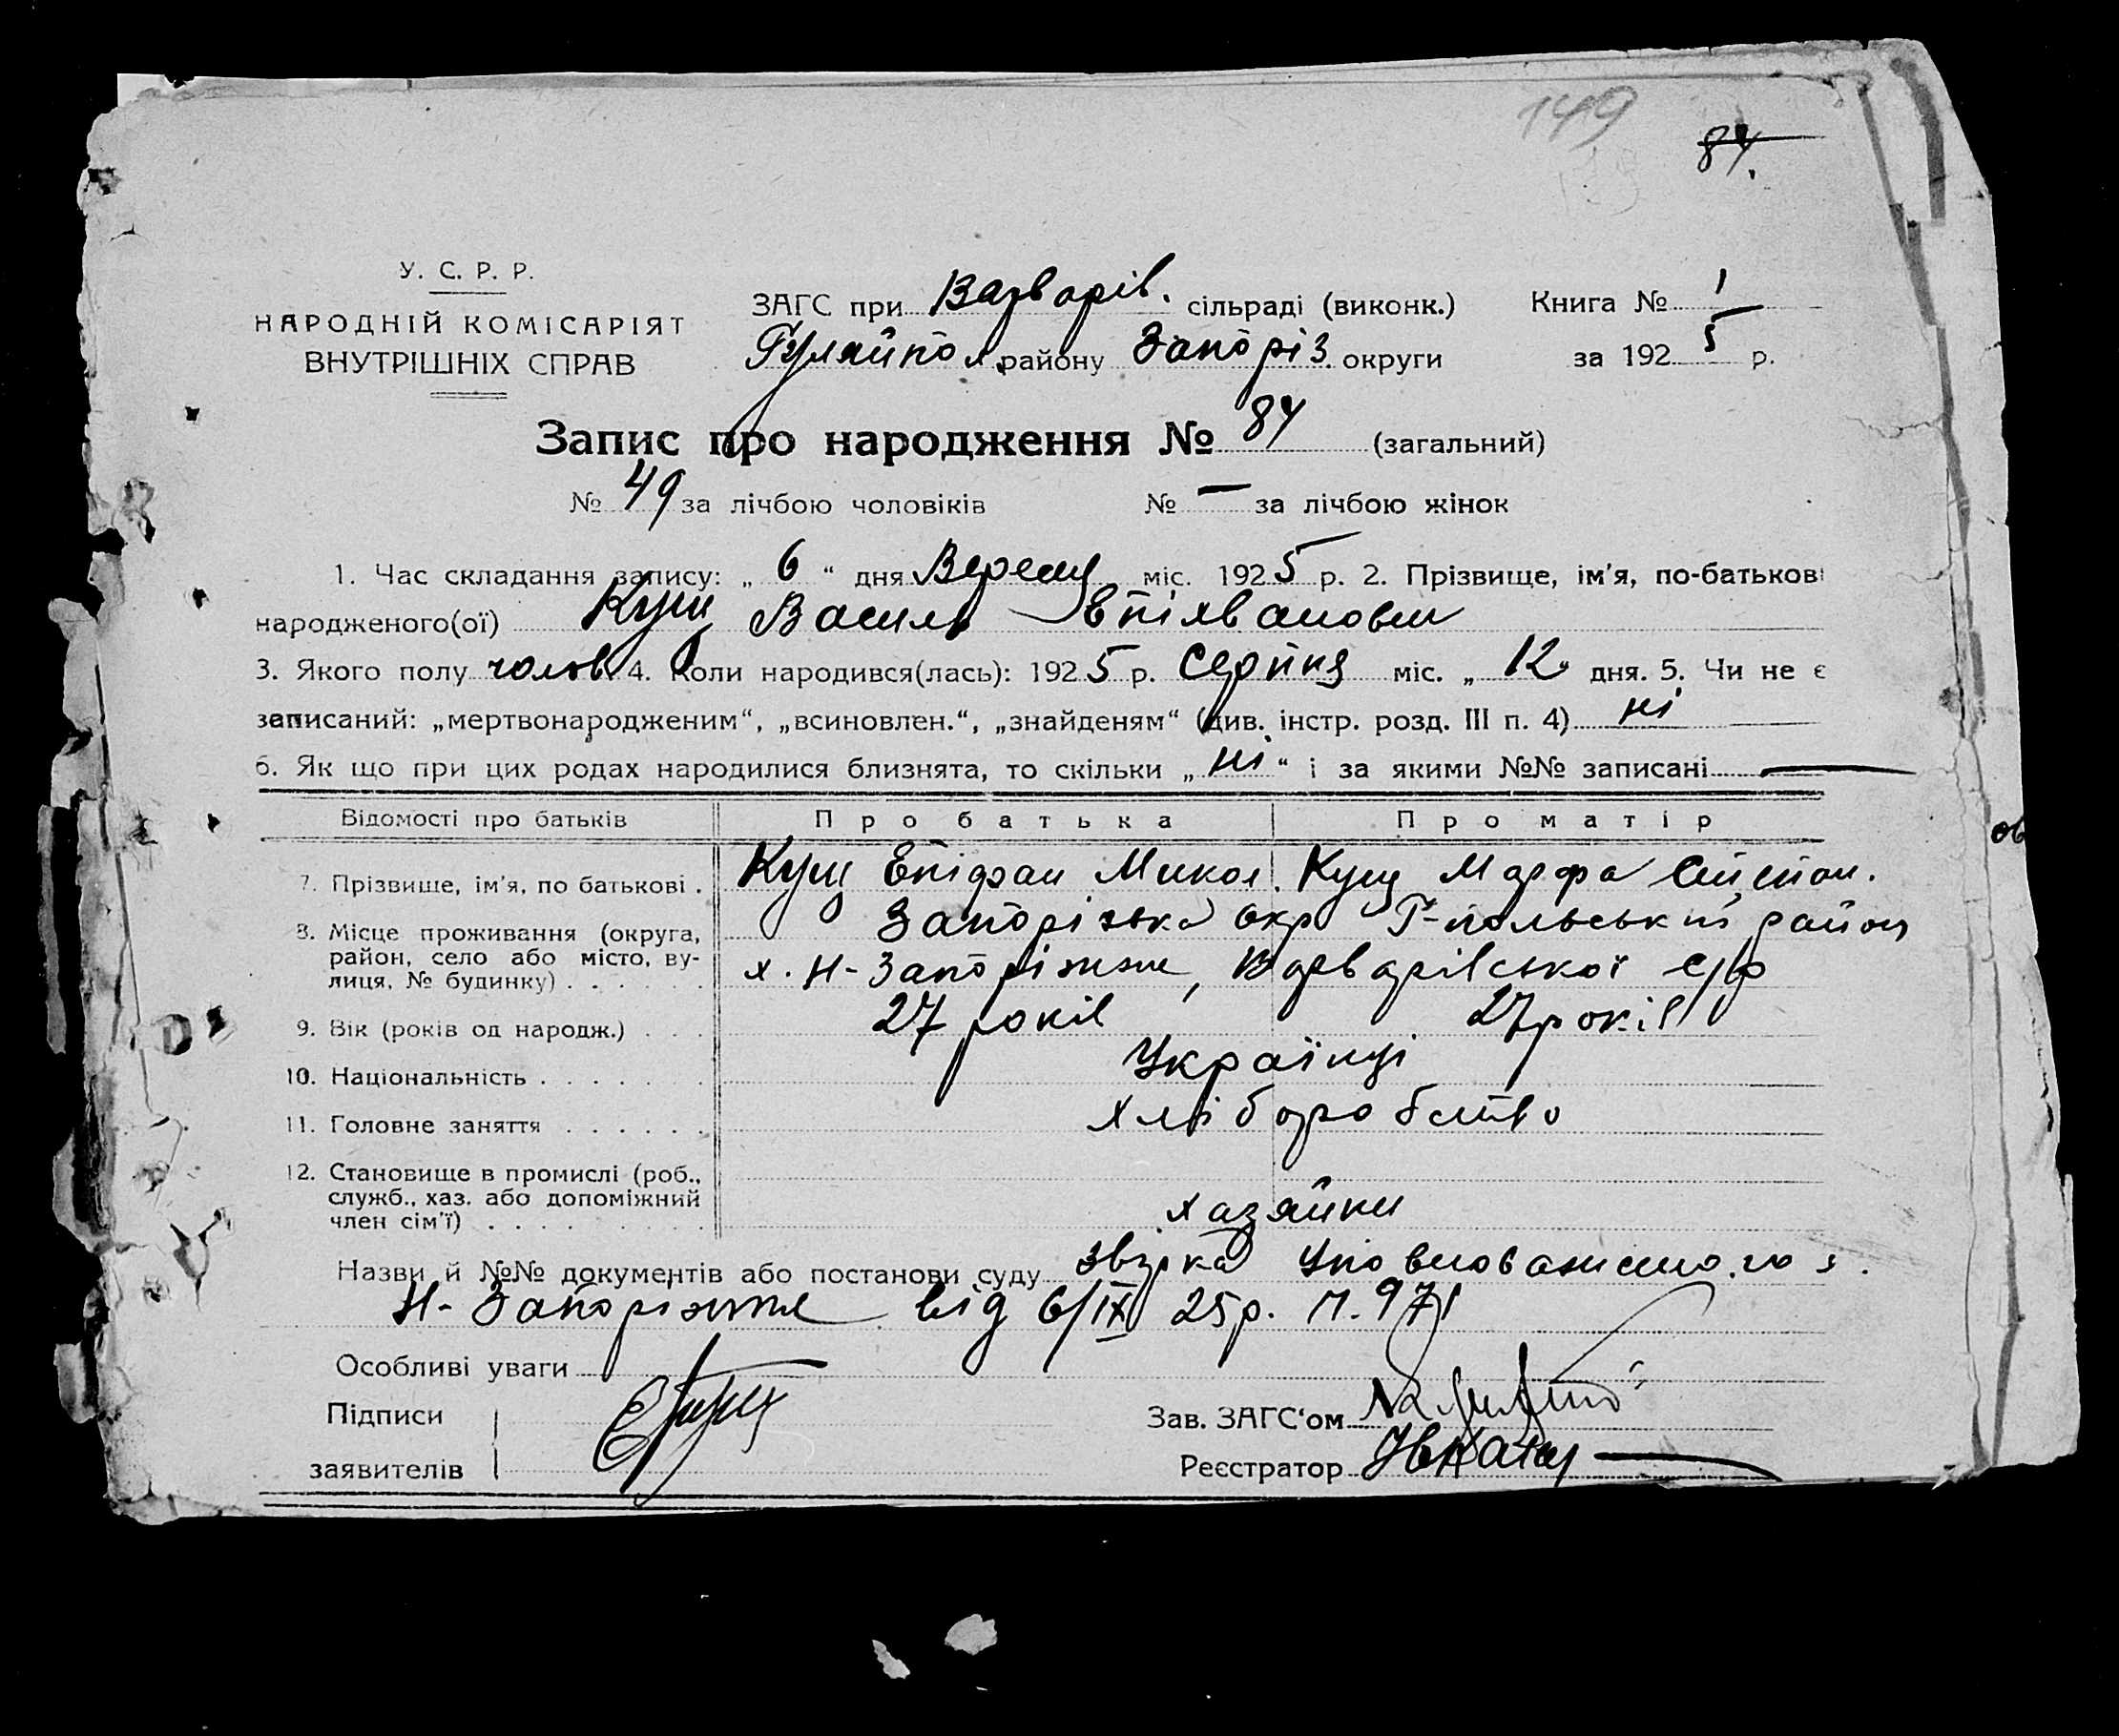 149
84.
У. С. Р. Р.
НАРОДНІЙ КОМІСАРІЯТ
ВНУТРІШНІХ СПРАВ
ЗАГС при Варварів. сільраді (виконк.)
Гуляйпол. району Запоріз. округи
Книга № 1
за 1925 р.
Запис про народження № 84 (загальний)
№ 49 за лічбою чоловіків № — за лічбою жінок
1. Час складання запису: „ 6 “ дня Вересня міс. 1925 р. 2. Прізвище, ім'я, по-батькові
народженого(ої) Кущ Василь Епіхванович
3. Якого полу чолов. 4. Коли народився(лась): 1925 р. Серпня міс. „ 12 „ дня. 5. Чи не є
записаний: „мертвонародженим“, „всиновлен.“, „знайденям“ (див. інстр. розд. III п. 4) ні
6. Як що при цих родах народилися близнята, то скільки „ ні “ і за якими №№ записані —
Відомості про батьків Про батька Про матір
7. Прізвище, ім'я, по батькові . Кущ Епіфан Микол. Кущ Марфа Степан.
8. Місце проживання (округа, Запорізька окр Г-польський район
район, село або місто, ву-
лиця, № будинку) . . . . . . х. Н-Запоріжже, Варварівської с/р
9. Вік (років од народж.) . . . 27 років 27 років
10. Національність . . . . . . Українці
11. Головне заняття . . . . . . хліборобство
12. Становище в промислі (роб.,
служб., хаз. або допоміжний
член сім'ї) . . . . . . . . хазяйки
Назви й №№ документів або постанови суду звірка х.
Н-Запоріжже від 6/IX 25р. п. 971
Особливі уваги
Підписи
заявителів
Зав. ЗАГС'ом
Реєстратор